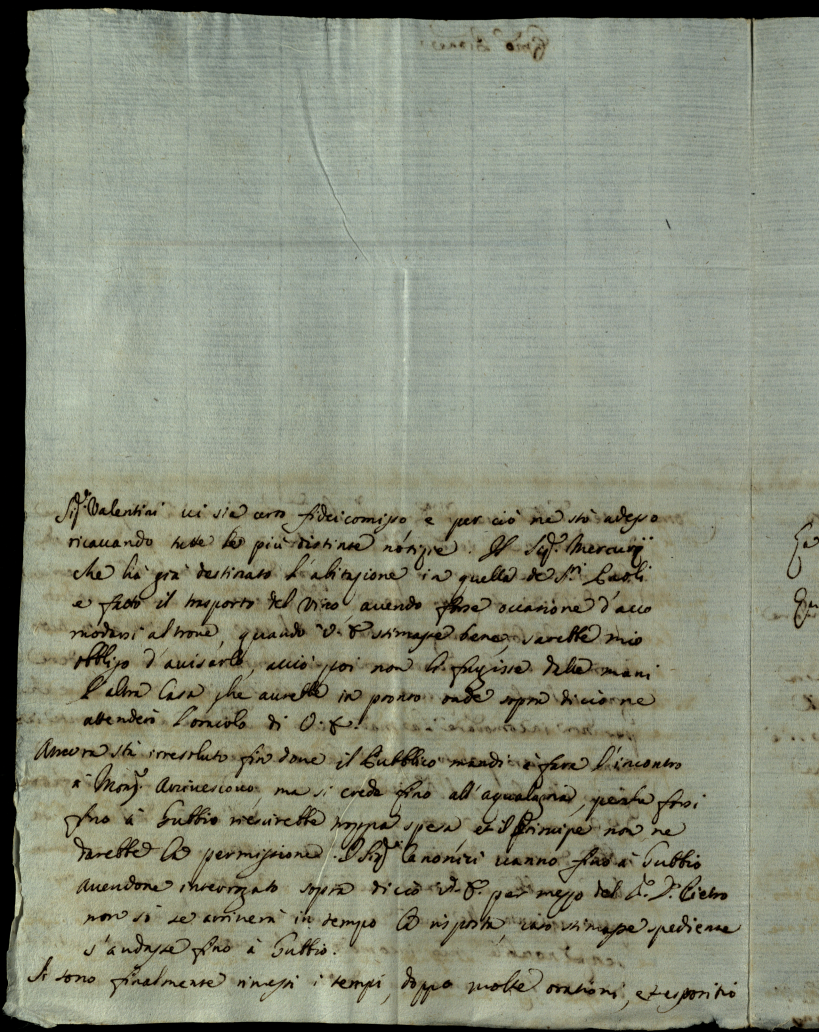 Sig.r Valentini vi sia certo fideicomisso e per ciò ne stò adesso
ricauando tutte le più distinte notizie. Il Sig.r Mercurij
che hà già destinato l'abitazione in quella de SS.ri Paoli
e fatto il trasporto del vino auendo forse occasione d'acco
modarsi altroue, quando V. E. stimasse bene, sarebbe mio
obbligo d'auisarlo, acciò poi non le fugisse delle mani
l'altra Casa che aurebbe in pronto onde sopra di ciò ne
attenderò l'oracolo di V. E.
Ancora stà irresoluto fin doue il Pubblico mandi à fare l'incontro
à Mons.r Arciuescouo, ma si crede fino all'aqualagna, perche forsi
fino à Gubbio riescirebbe troppa spesa et il Principe non ne
darebbe la permissione. I Sig.ri Canonici vanno fino à Gubbio
auendone interrogato sopra di ciò V. E. per mezzo del D. Pietro
non sò se arriuerà in tempo la risposta, caso stimasse spediente
s'andasse fino à Gubbio.
Si sono finalmente rimessi i tempi, doppo molte orationi, et espositio